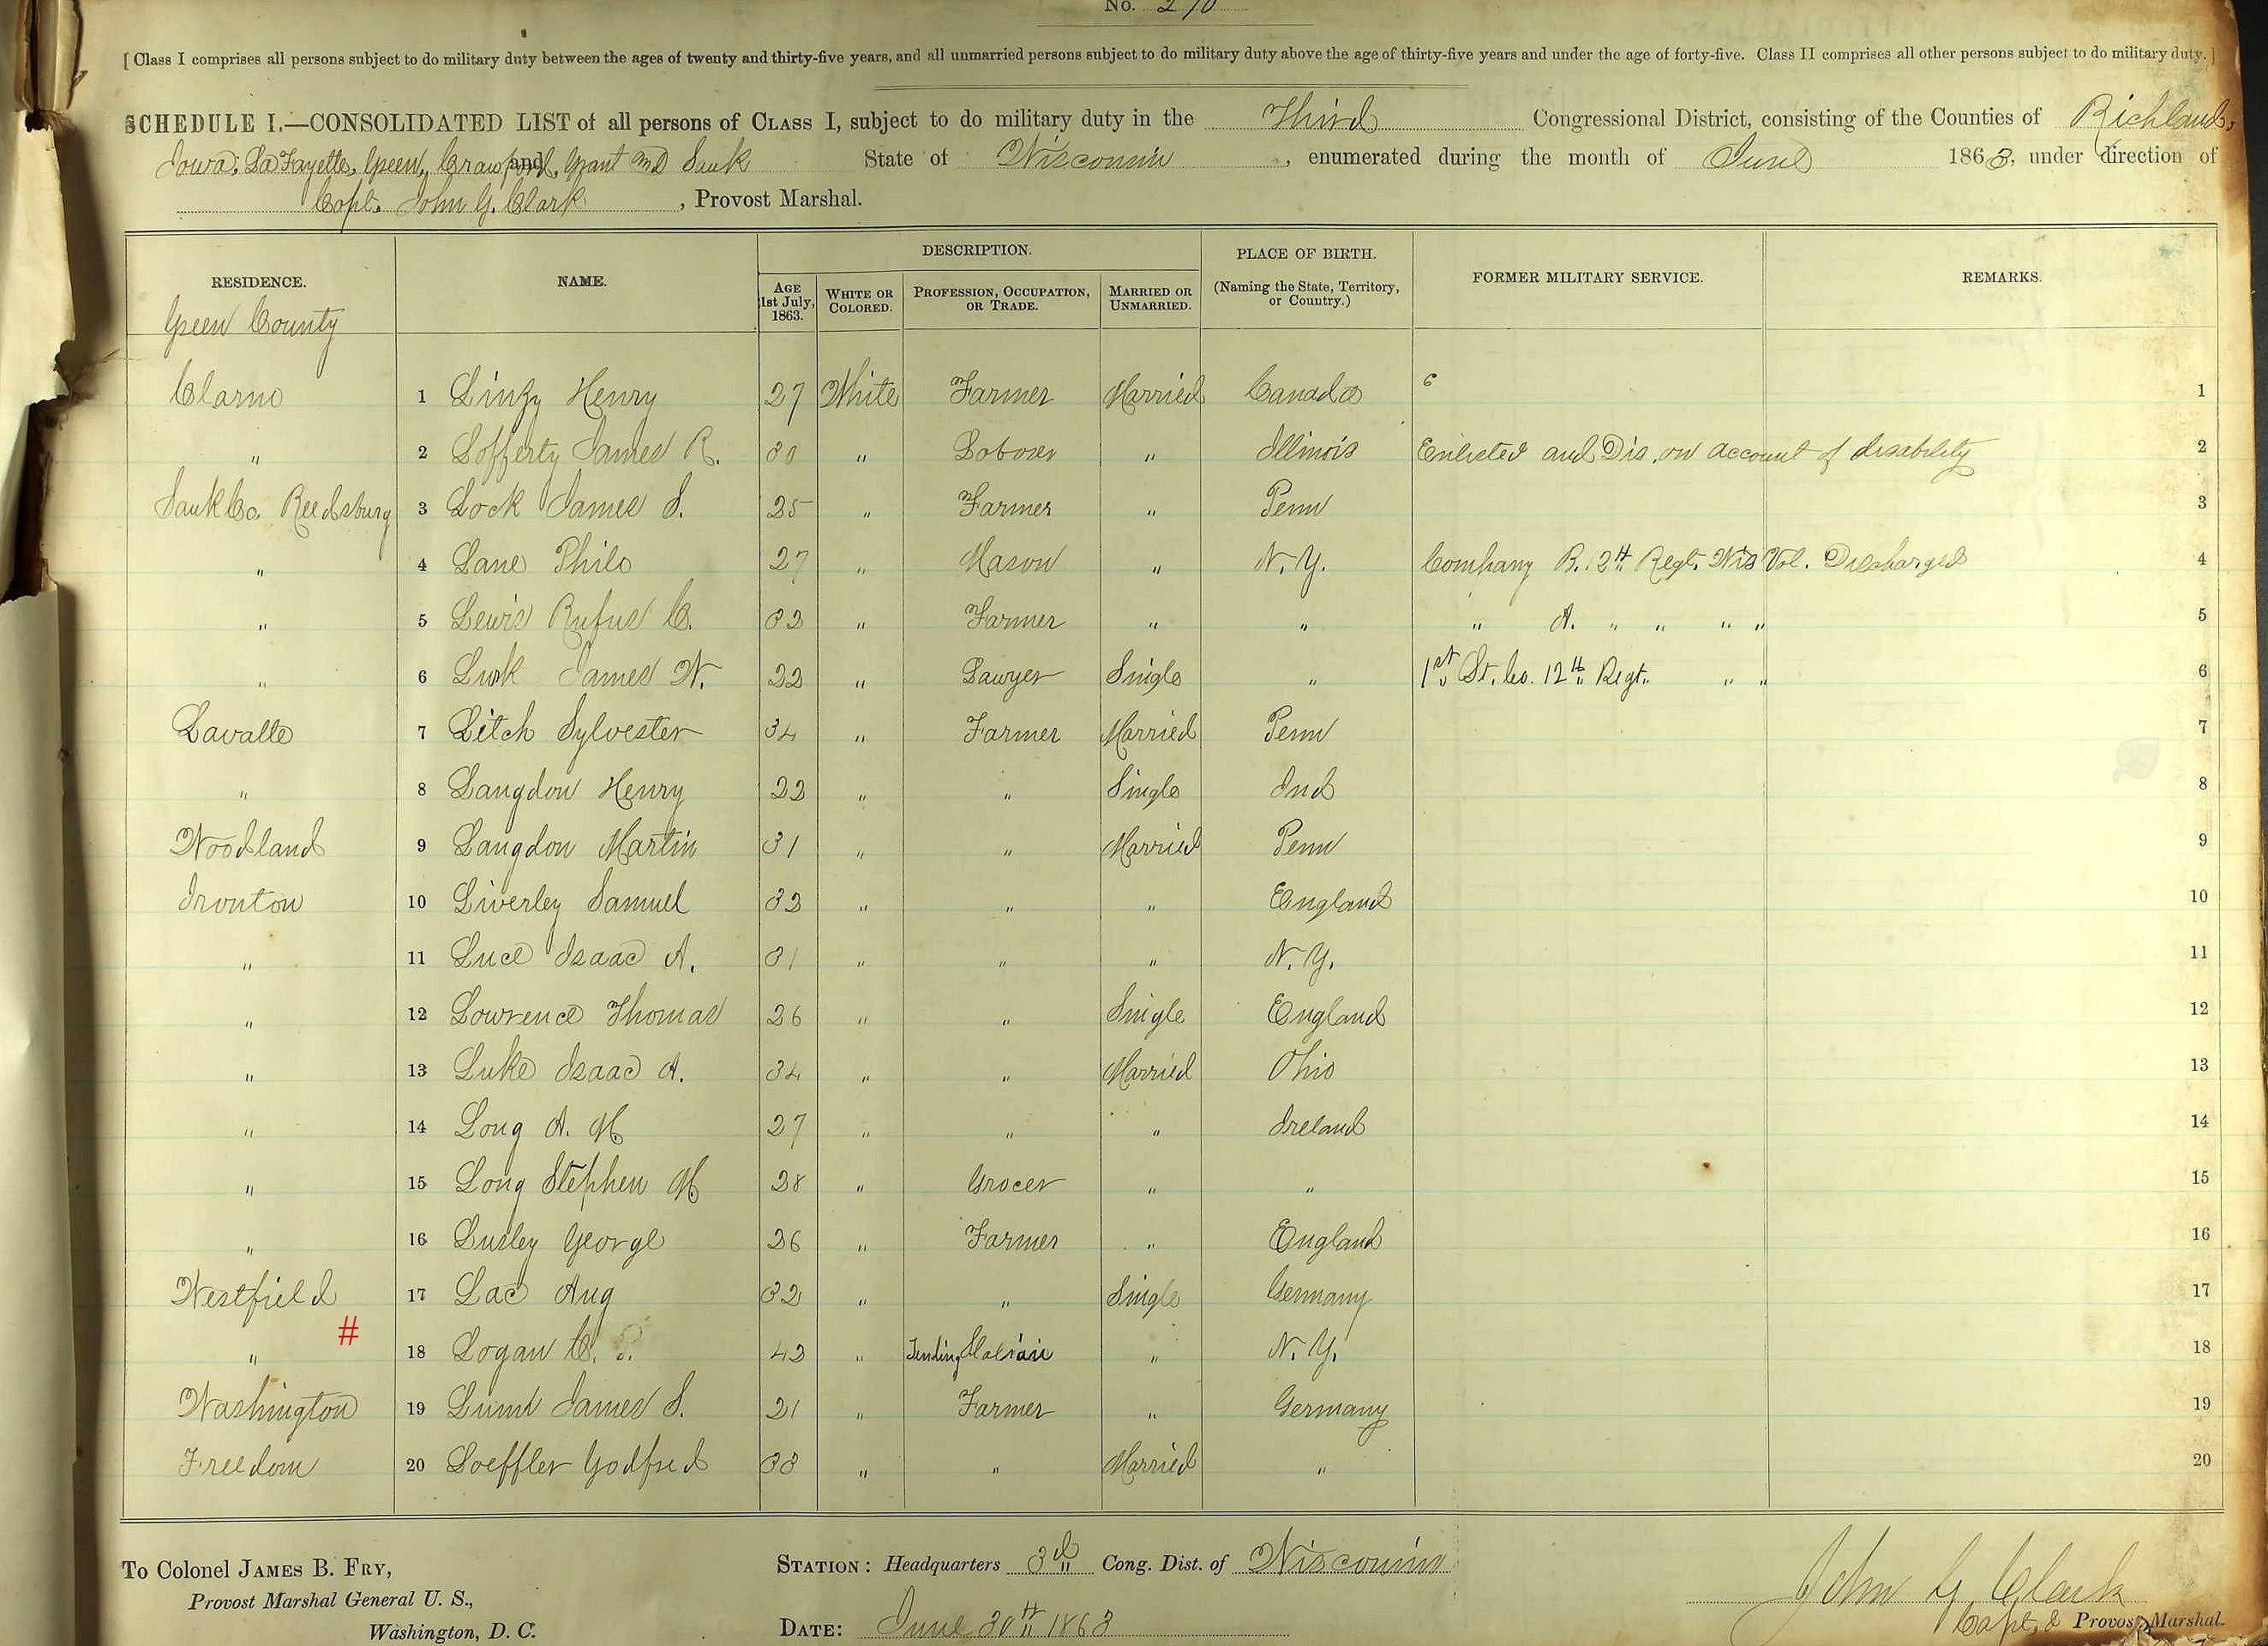 No. 270
[ Class I comprises all persons subject to do military duty between the ages of twenty and thirty-five years, and all unmarried persons subject to do military duty above the age of thirty-five years and under the age of forty-five. Class II comprises all other persons subject to do military duty. ]
SCHEDULE I.—CONSOLIDATED LIST of all persons of CLASS I, subject to do military duty in the Third Congressional District, consisting of the Counties of Richland,
Iowa, La Fayette, Green, Crawford, Grant and Sauk State of Wisconsin, enumerated during the month of June 1863, under direction of
Capt. John G. Clark, Provost Marshal.
RESIDENCE. NAME. DESCRIPTION. PLACE OF BIRTH. (Naming the State, Territory, or Country.) FORMER MILITARY SERVICE. REMARKS.
AGE 1st July, 1863. WHITE OR COLORED. PROFESSION, OCCUPATION, OR TRADE. MARRIED OR UNMARRIED.
Green County
Clarno 1 Henry 27 White Farmer Married Canada 1
" 2 Lofferty James R. 30 " Loborer " Illinois Enlisted and Dis. on account of disability 2
Sauk Co. Reedsburg 3 Lock James S. 25 " Farmer " Penn 3
" 4 Lane Philo 27 " Mason " N. Y. Company B. 2" Regt. Wis Vol. Discharged 4
" 5 Lewis Rufus C. 32 " Farmer " " " A. " " " " 5
" 6 Lusk James W. 22 " Lawyer Single " 1st Lt. Co. 12th Regt. " " 6
Lavalle 7 Litch Sylvester 34 " Farmer Married Penn 7
" 8 Langdon Henry 22 " " Single Ind 8
Woodland 9 Langdon Martin 31 " " Married Penn 9
Ironton 10 Liverley Samuel 32 " " " England 10
" 11 Luce Isaac A. 31 " " " N. Y. 11
" 12 Lowrence Thomas 26 " " Single England 12
" 13 Luke Isaac A. 34 " " Married Ohio 13
" 14 Long A. H 27 " " " Ireland 14
" 15 Long Stephen H 28 " Grocer " " 15
" 16 Lusley George 26 " Farmer " England 16
Westfield 17 Lac Aug 32 " " Single Germany 17
#
" 18 Logan C. 42 " Tending " N. Y. 18
Washington 19 James S. 21 " Farmer " Germany 19
Freedom 20 Loeffler Godfred 33 " " Married " 20
To Colonel JAMES B. FRY,
Provost Marshal General U. S.,
Washington, D. C.
STATION: Headquarters 3d Cong. Dist. of Wisconsin
DATE: June 30th 1863
John G Clark
Capt. & Provost Marshal.